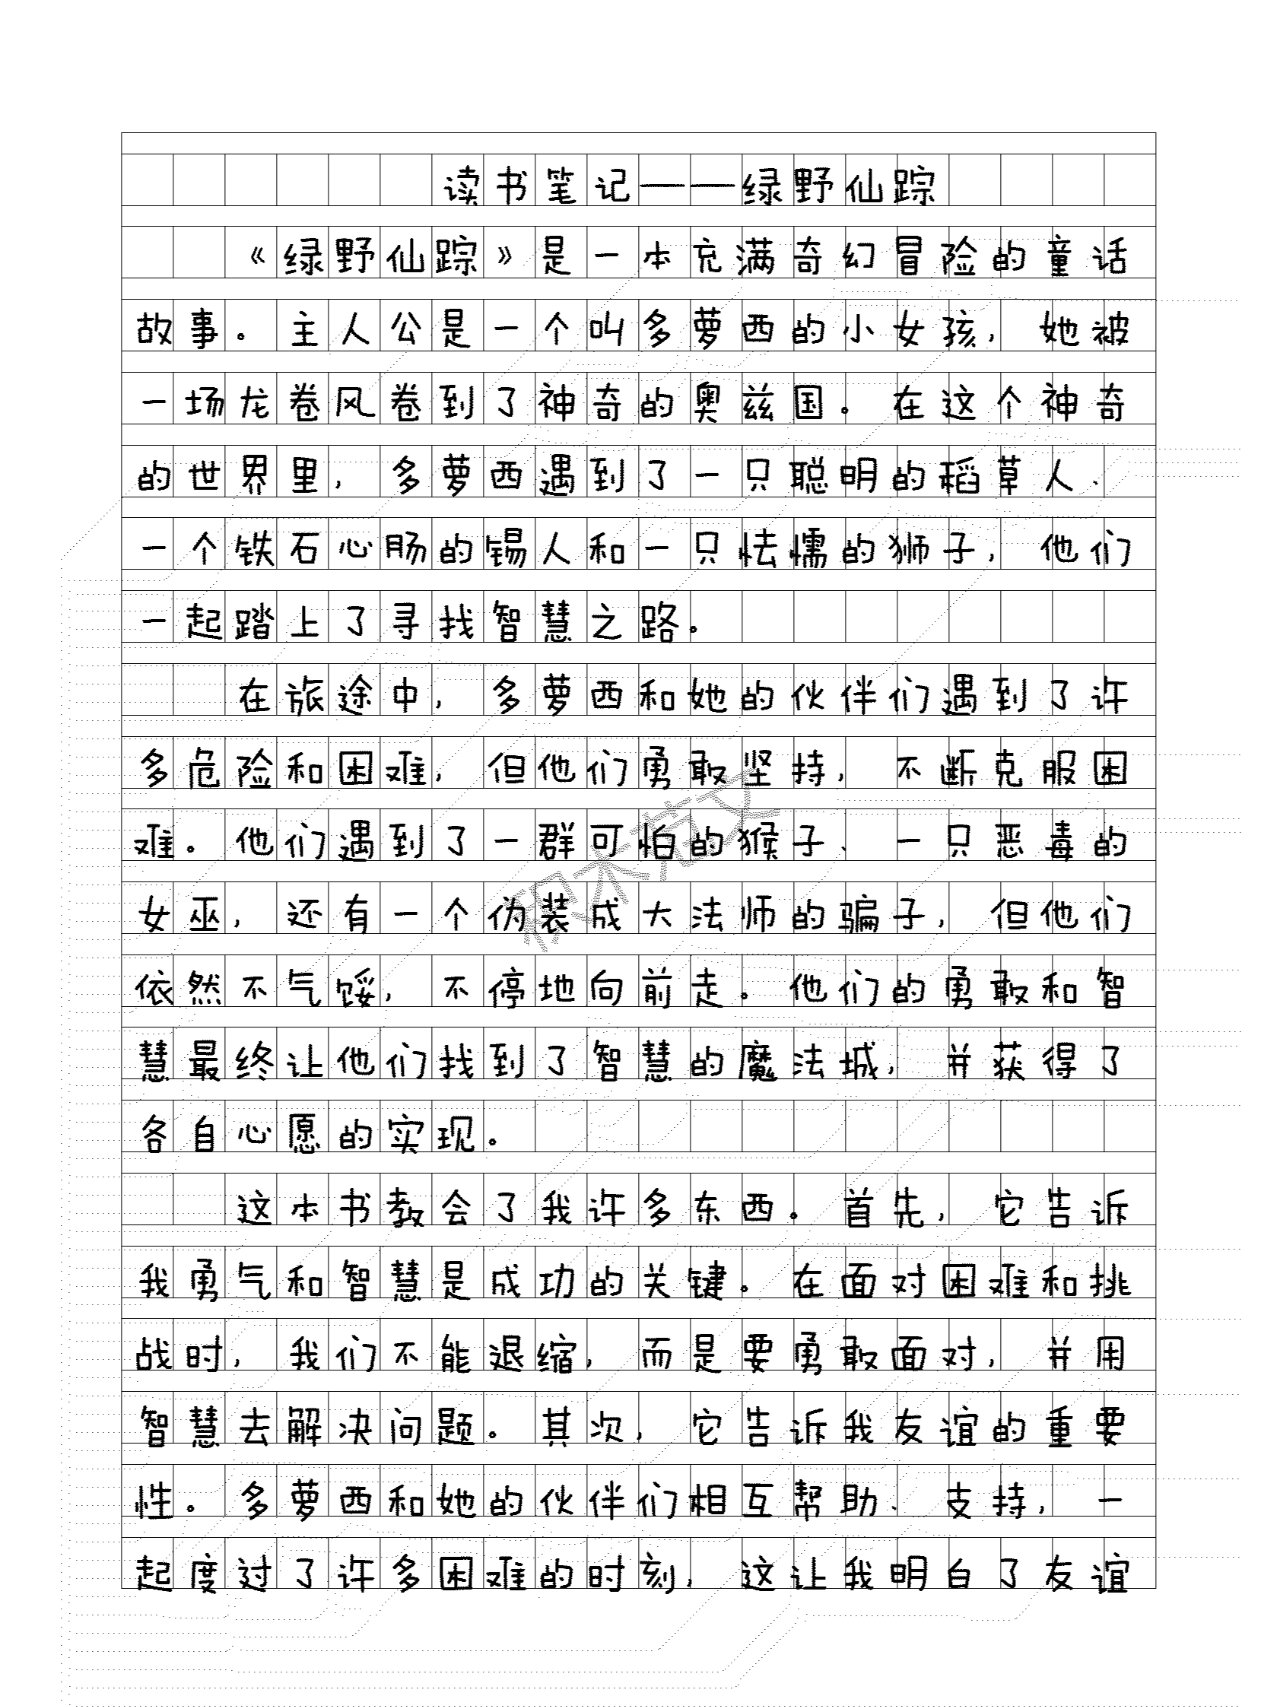 读书笔记——绿野仙踪
《绿野仙踪》是一本充满奇幻冒险的童话
故事。主人公是一个叫多萝西的小女孩，她被
一场龙卷风卷到了神奇的奥兹国。在这个神奇
的世界里，多萝西遇到了一只聪明的稻草人、
一个铁石心肠的锡人和一只怯懦的狮子，他们
一起踏上了寻找智慧之路。
在旅途中，多萝西和她的伙伴们遇到了许
多危险和困难，但他们勇敢坚持，不断克服困
难。他们遇到了一群可怕的猴子、一只恶毒的
女巫，还有一个伪装成大法师的骗子，但他们
依然不气馁，不停地向前走。他们的勇敢和智
慧最终让他们找到了智慧的魔法城，并获得了
各自心愿的实现。
这本书教会了我许多东西。首先，它告诉
我勇气和智慧是成功的关键。在面对困难和挑
战时，我们不能退缩，而是要勇敢面对，并用
智慧去解决问题。其次，它告诉我友谊的重要
性。多萝西和她的伙伴们相互帮助、支持，一
起度过了许多困难的时刻，这让我明白了友谊
积木范文